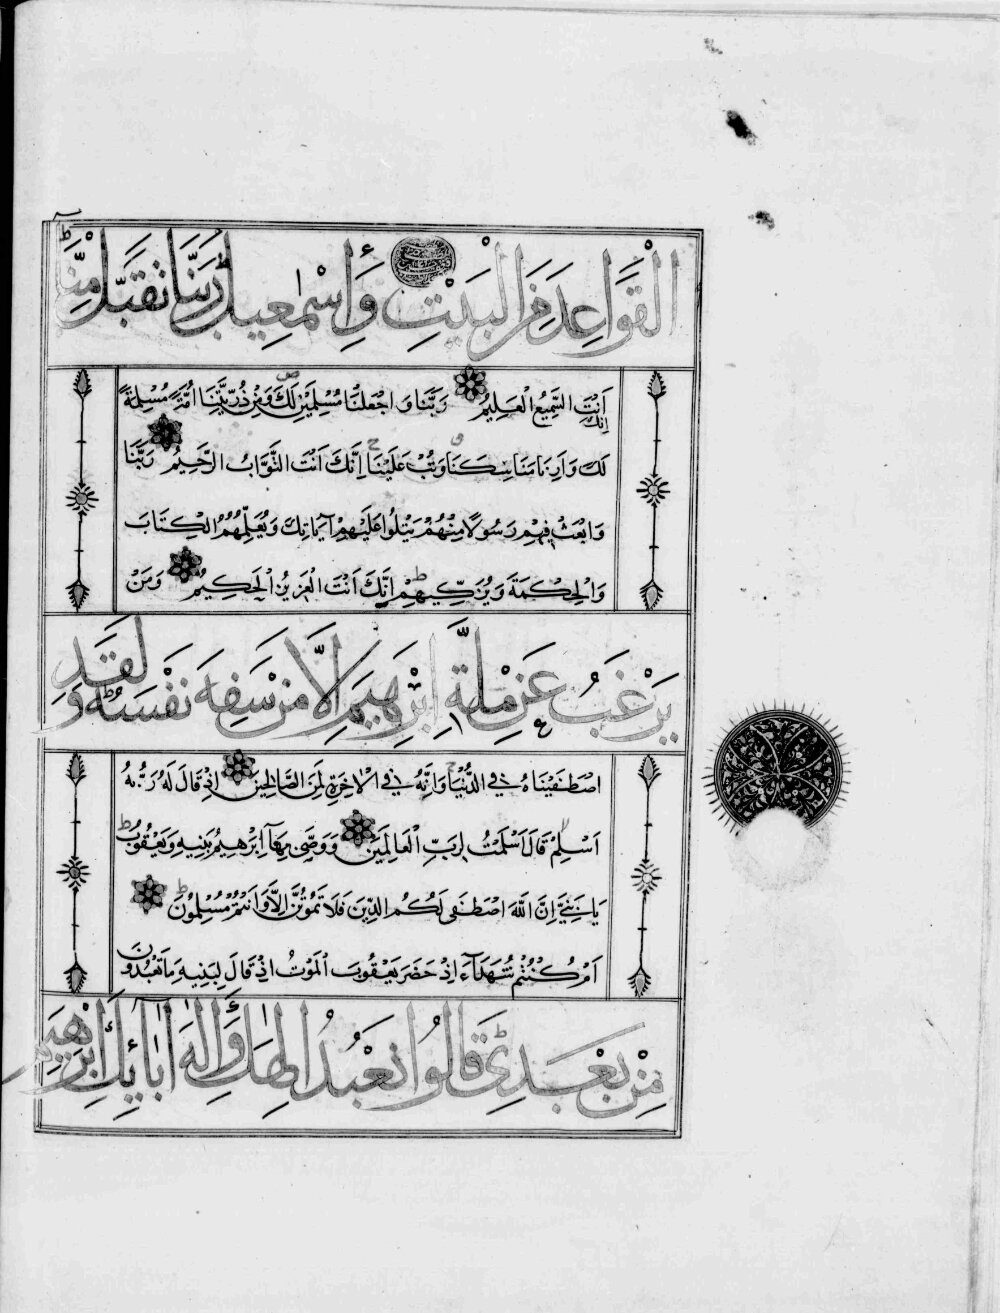 الْقَوَاعِدَ مِنَ الْبَيْتِ وَإِسْمٰعِيلُ رَبَّنَا تَقَبَّلْ مِنَّا
اَنْتَ السَّمِيعُ الْعَلِيمُ رَبَّنَا وَاجْعَلْنَا مُسْلِمَيْنِ لَكَ وَمِنْ ذُرِّيَّتِنَا اُمَّةً مُسْلِمَةً
اِنَّكَ
لَكَ وَاَرِنَا مَنَاسِكَنَا وَتُبْ عَلَيْنَا اِنَّكَ اَنْتَ التَّوَّابُ الرَّحِيمُ رَبَّنَا
وَابْعَثْ فِيهِمْ رَسُولًا مِنْهُمْ يَتْلُوا عَلَيْهِمْ آيَاتِكَ وَيُعَلِّمُهُمُ الْكِتَابَ
وَالْحِكْمَةَ وَيُزَكِّيهِمْ اِنَّكَ اَنْتَ الْعَزِيزُ الْحَكِيمُ وَمَنْ
يَرْغَبُ عَنْ مِلَّةِ اِبْرٰهِيمَ اِلَّا مَنْ سَفِهَ نَفْسَهُ وَلَقَدِ
اصْطَفَيْنَاهُ فِي الدُّنْيَا وَاِنَّهُ فِي الْاٰخِرَةِ لَمِنَ الصَّالِحِينَ اِذْ قَالَ لَهُ رَبُّهُ
اَسْلِمْ قَالَ اَسْلَمْتُ لِرَبِّ الْعَالَمِينَ وَوَصّٰى بِهَا اِبْرٰهِيمُ بَنِيهِ وَيَعْقُوبُ
يَا بَنِيَّ اِنَّ اللّٰهَ اصْطَفٰى لَكُمُ الدِّينَ فَلَا تَمُوتُنَّ اِلَّا وَاَنْتُمْ مُسْلِمُونَ
اَمْ كُنْتُمْ شُهَدَآءَ اِذْ حَضَرَ يَعْقُوبَ الْمَوْتُ اِذْ قَالَ لِبَنِيهِ مَا تَعْبُدُونَ
مِنْ بَعْدِي قَالُوا نَعْبُدُ اِلٰهَكَ وَاِلٰهَ اٰبَآئِكَ اِبْرٰهِيمَ